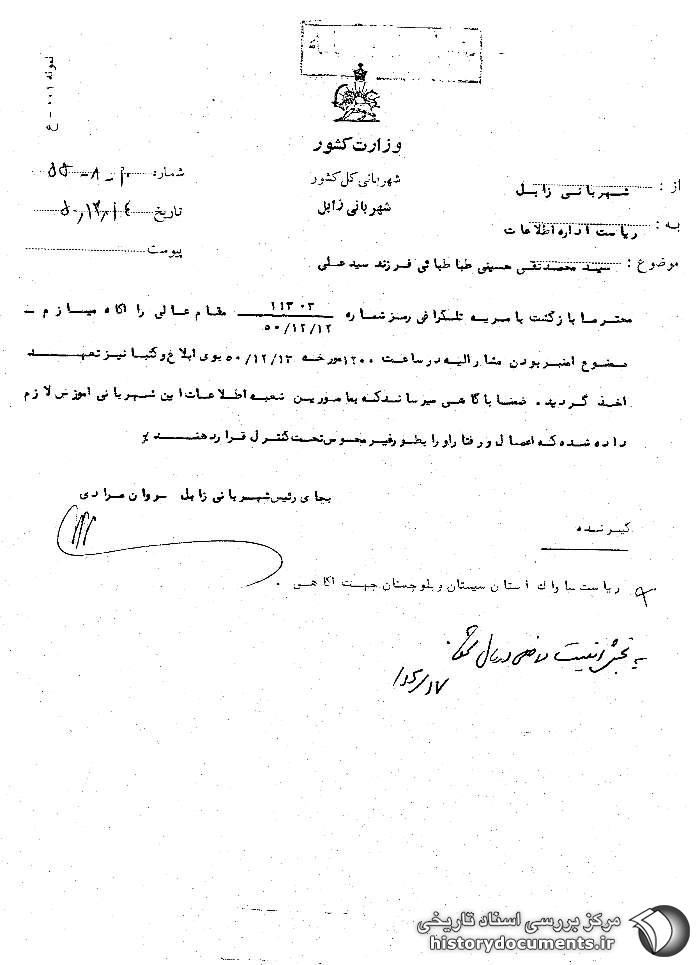 نمونه ۰۰۱ – ع
وزارت کشور
شهربانی کل کشور
شهربانی زابل
شماره
تاریخ
پیوست
از : شهربانی زابل
به : ریاست اداره اطلاعات
موضوع : سید محمدتقی حسینی طباطبائی فرزند سیدعلی
محترما بازگشت بامریه تلگرافی رمز شماره ۱۱۴۳۰۳ ۵۰/۱۲/۱۲ مقام عالی را آگاه میسازم –
موضوع ممنبر بودن مشارالیه در ساعت ۱۲۰۰ مورخه ۵۰/۱۲/۱۳ بوی ابلاغ و کتبا نیز تعهد
اخذ گردید . ضمنا باگاهی میرساند که بمامورین شعبه اطلاعات این شهربانی آموزش لازم
داده شده که اعمال و رفتار او را بطور غیر محسوس تحت کنترل قرار دهند
بجای رئیس شهربانی زابل سروان مرادی
گیرنده
ریاست ساواک استان سیستان و بلوچستان جهت آگاهی .
مرکز بررسی اسناد تاریخی
historydocuments.ir